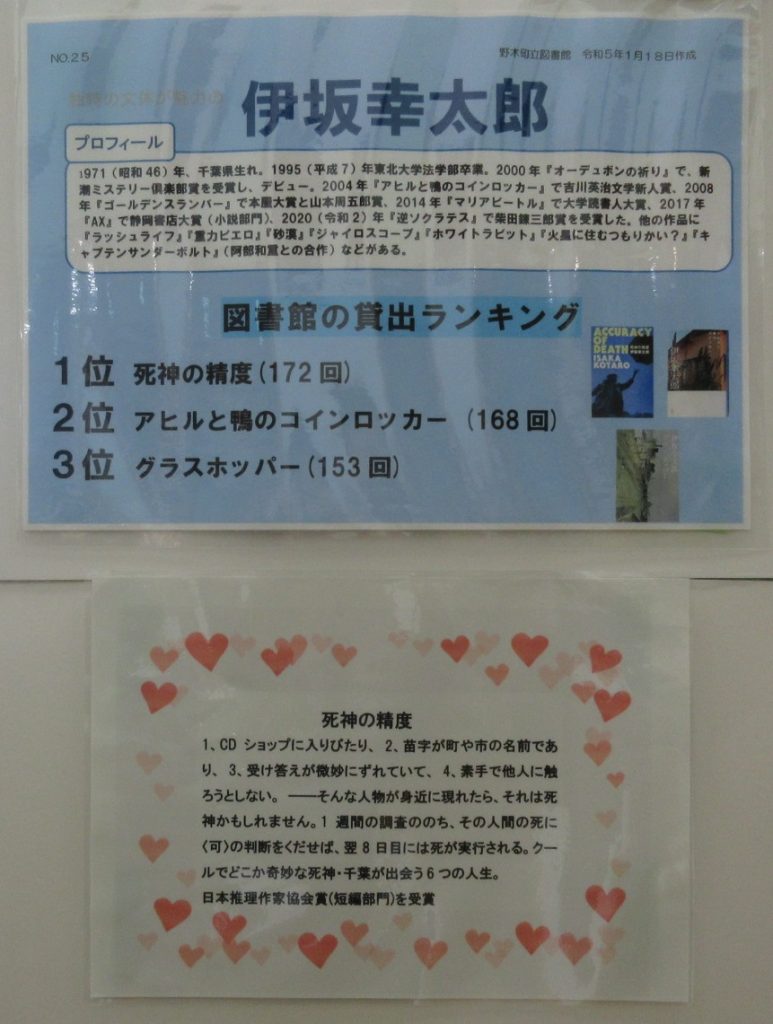 NO.25
野木町立図書館 令和5年1月18日作成
独特の文体が魅力の
伊坂幸太郎
プロフィール
1971(昭和46)年、千葉県生れ。1995(平成7)年東北大学法学部卒業。2000年『オーデュボンの祈り』で、新
潮ミステリー倶楽部賞を受賞し、デビュー。2004年『アヒルと鴨のコインロッカー』で吉川英治文学新人賞、2008
年『ゴールデンスランバー』で本屋大賞と山本周五郎賞、2014年『マリアビートル』で大学読書人大賞、2017年
『AX』で静岡書店大賞(小説部門)、2020(令和2)年『逆ソクラテス』で柴田錬三郎賞を受賞した。他の作品に
『ラッシュライフ』『重力ピエロ』『砂漠』『ジャイロスコープ』『ホワイトラビット』『火星に住むつもりかい?』『キ
ャプテンサンダーボルト』(阿部和重との合作)などがある。
図書館の貸出ランキング
1位 死神の精度(172回)
2位 アヒルと鴨のコインロッカー (168回)
3位 グラスホッパー(153回)
ACCURACY
OF
DEATH
ISAKA
KOTARO
死神の精度
1、CDショップに入りびたり、2、苗字が町や市の名前であ
り、3、受け答えが微妙にずれていて、4、素手で他人に触
ろうとしない。――そんな人物が身近に現れたら、それは死
神かもしれません。1週間の調査ののち、その人間の死に
〈可〉の判断をくだせば、翌8日目には死が実行される。クー
ルでどこか奇妙な死神・千葉が出会う6つの人生。
日本推理作家協会賞(短編部門)を受賞